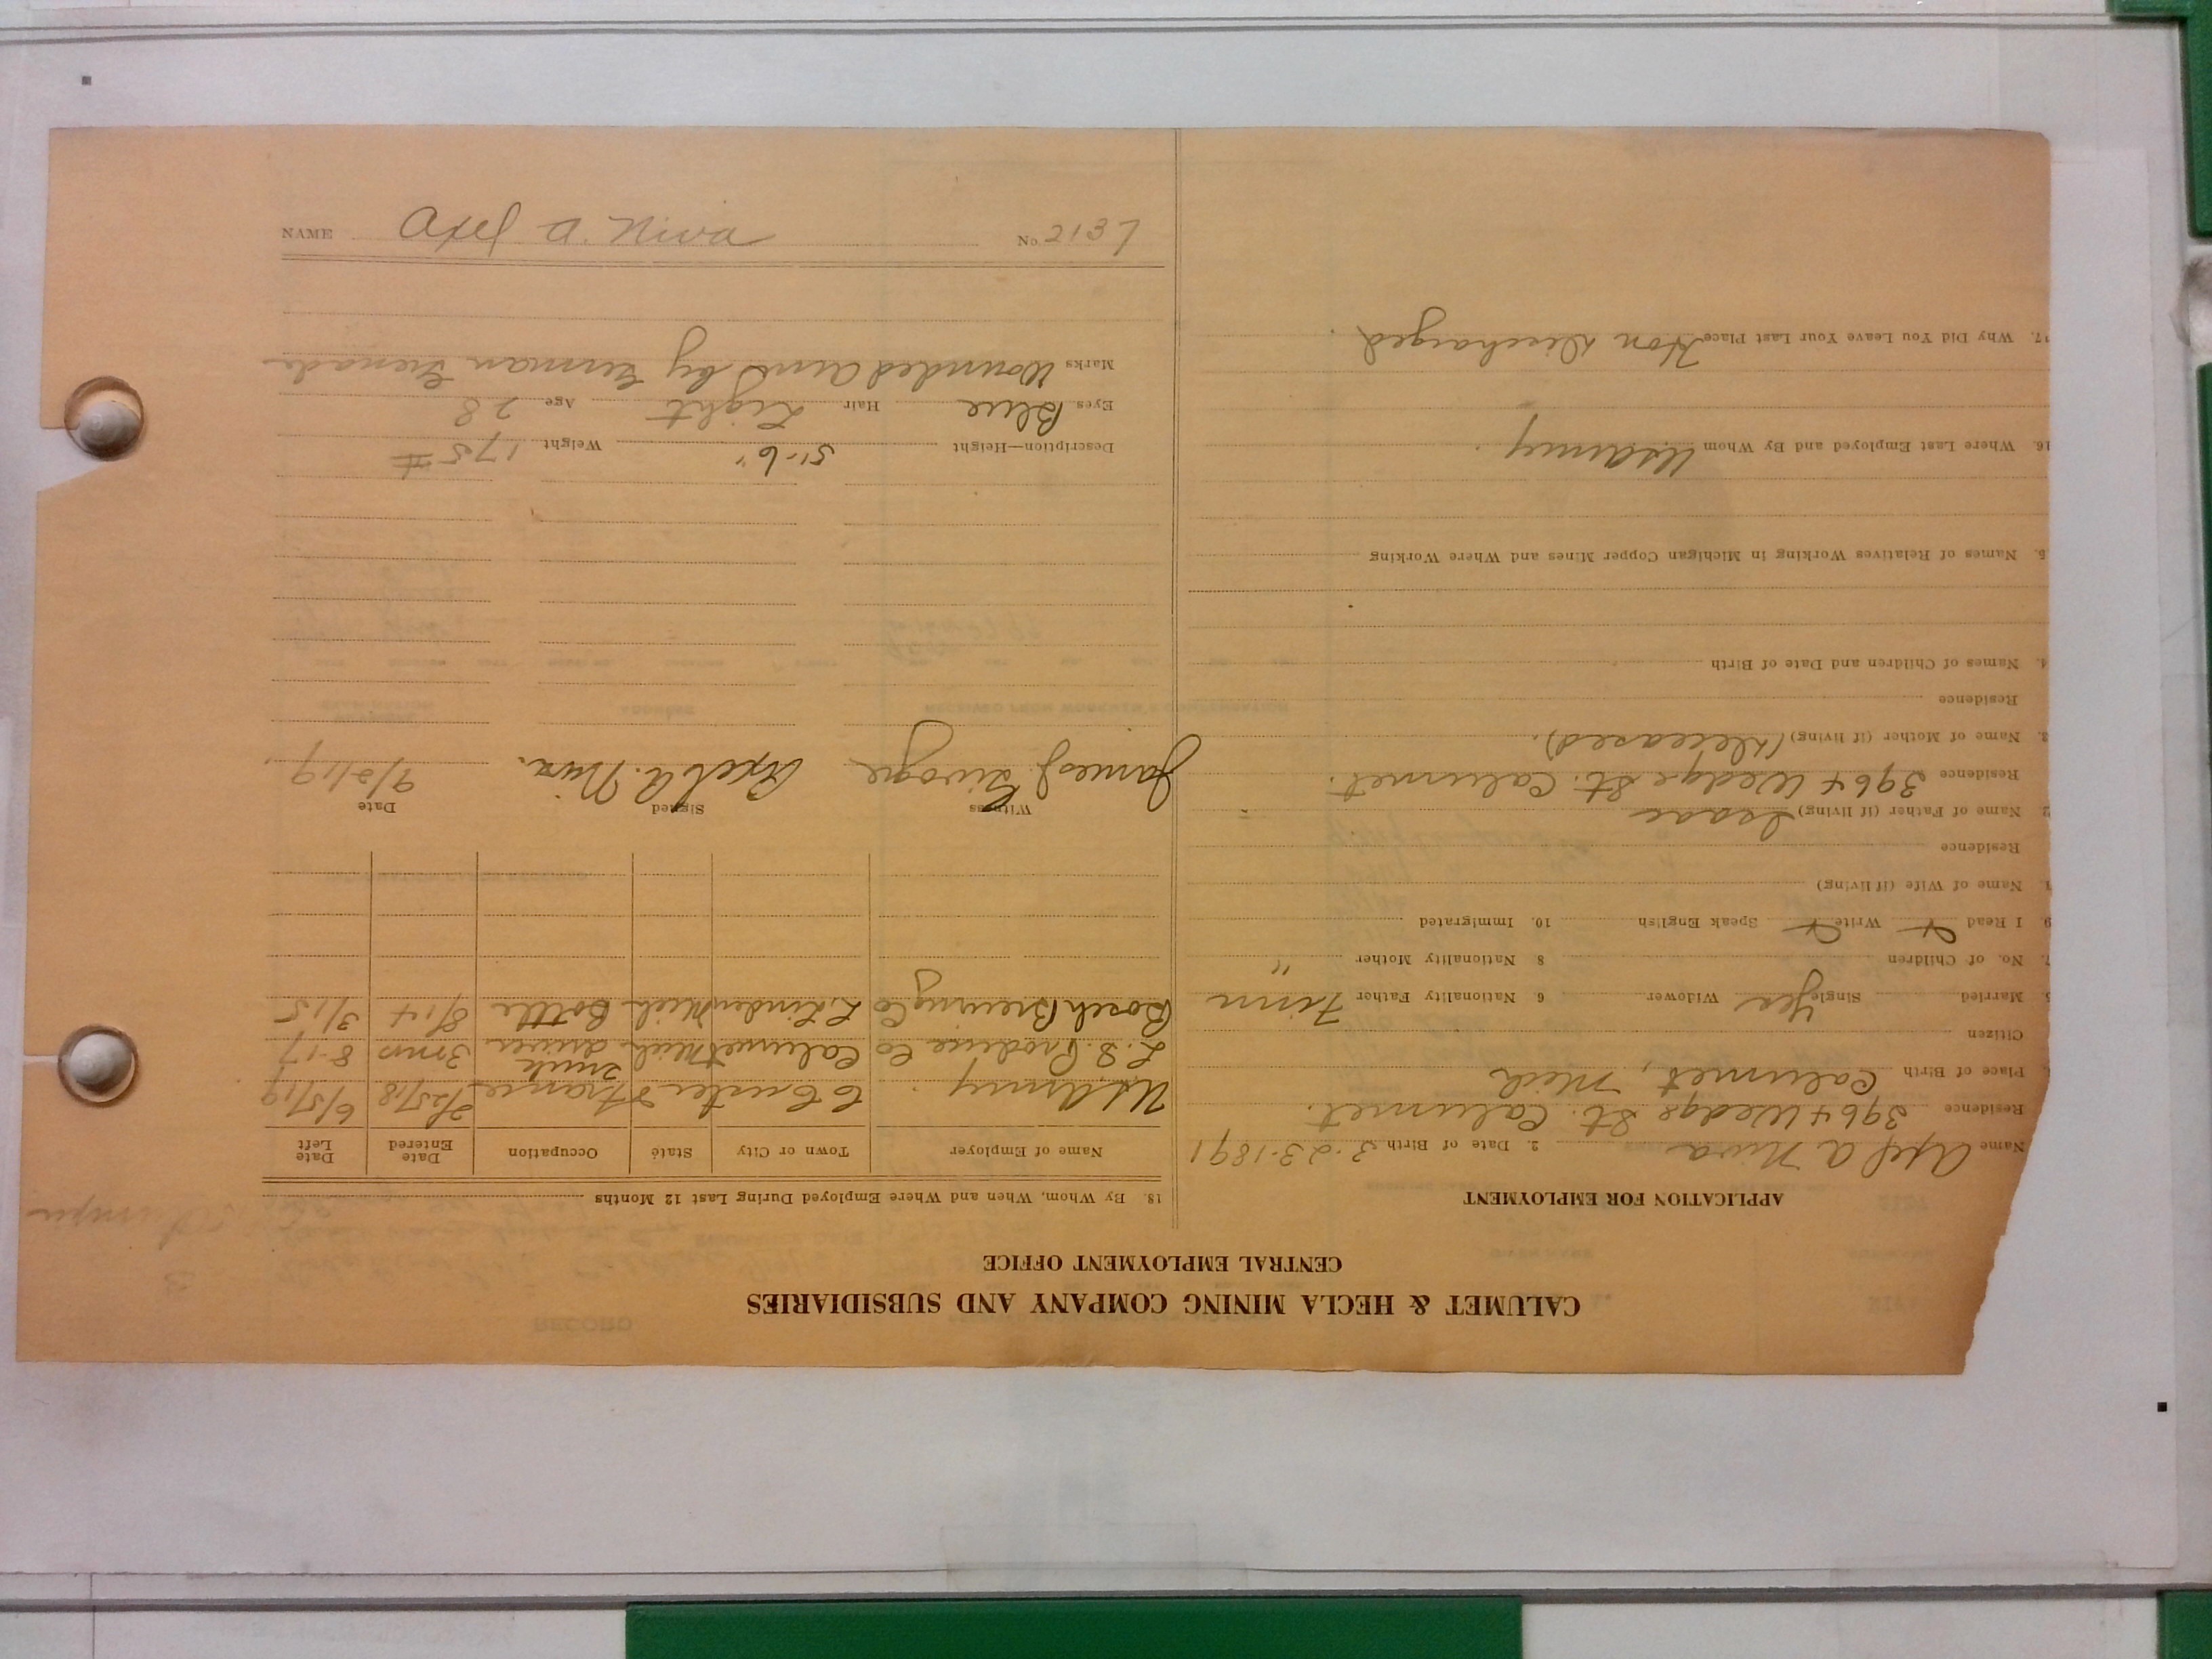 CALUMET & HECLA MINING COMPANY AND SUBSIDIARIES
CENTRAL EMPLOYMENT OFFICE
APPLICATION FOR EMPLOYMENT
Name Axel A Niva 2. Date of Birth 3-23-1891
Residence 3964 Wedge St. Calumet.
Place of Birth Calumet, Mich
Citizen
5. Married Single Yes Widower 6 Nationality Father Finn
7. No. of Children 8 Nationality Mother "
9. I Read Write Speak English 10. Immigrated
1. Name of Wife (if living)
Residence
2. Name of Father (if living) Isaac
Residence 3964 Wedge St. Calumet.
3. Name of Mother (if living) (Deceased).
Residence
4. Names of Children and Date of Birth
5. Names of Relatives Working in Michigan Copper Mines and Where Working
16. Where Last Employed and By Whom US Army.
17. Why Did You Leave Your Last Place Hon Discharged.
18. By Whom, When and Where Employed During Last 12 Months
Name of Employer Town or City State Occupation Date Entered Date Left
US Army. C Custer & France 2/25/18 6/5/19
L.S. Produce Co Calumet Mich truck driver 3 mos 8-17
Bosch Brewing Co L. Linden Mich Bottle 8/14 3/15
Witness Signed Date
James J. Axel A. Niva. 9/2/19,
Description—Height 5'-6" Weight 175 #
Eyes Blue Hair Light Age 28
Marks Wounded arm by German Grenade
NAME Axel A. Niva No. 2137